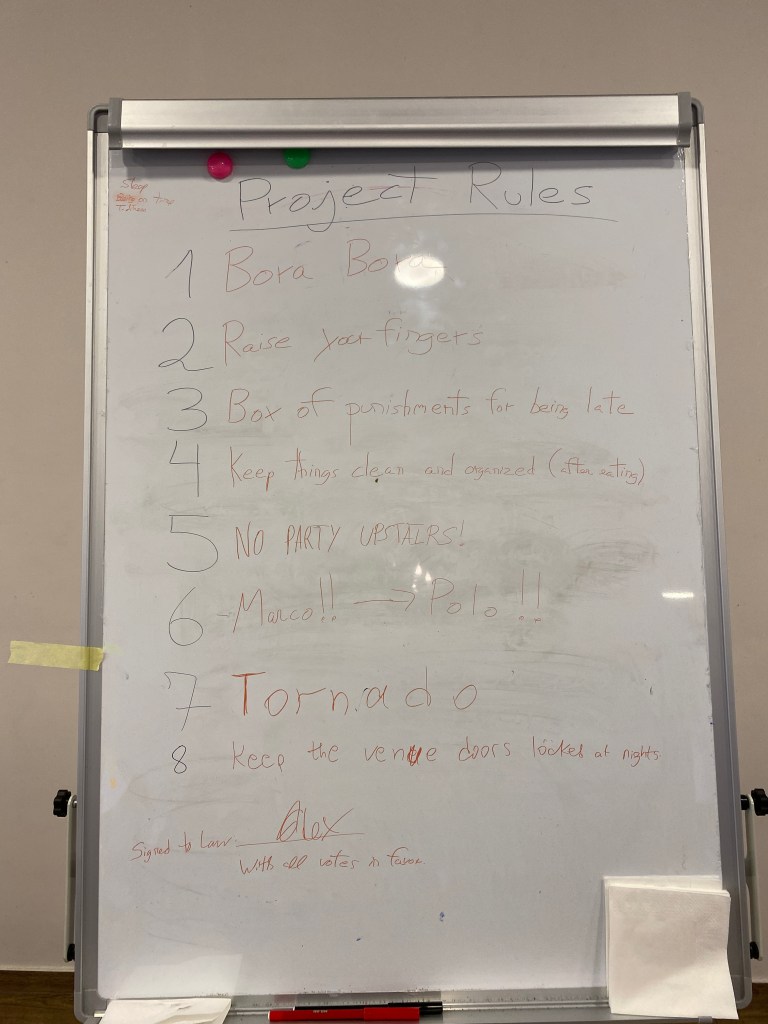 Project Rules
1 Bora Bora
2 Raise your fingers
3 Box of punishments for being late
4 Keep things clean and organized (after eating)
5 NO PARTY UPSTAIRS!
6 -Marco!! → Polo!!
7 Tornado
8 Keep the venue doors locket at nights.
Signed to Law: Alex
With all votes in favor.